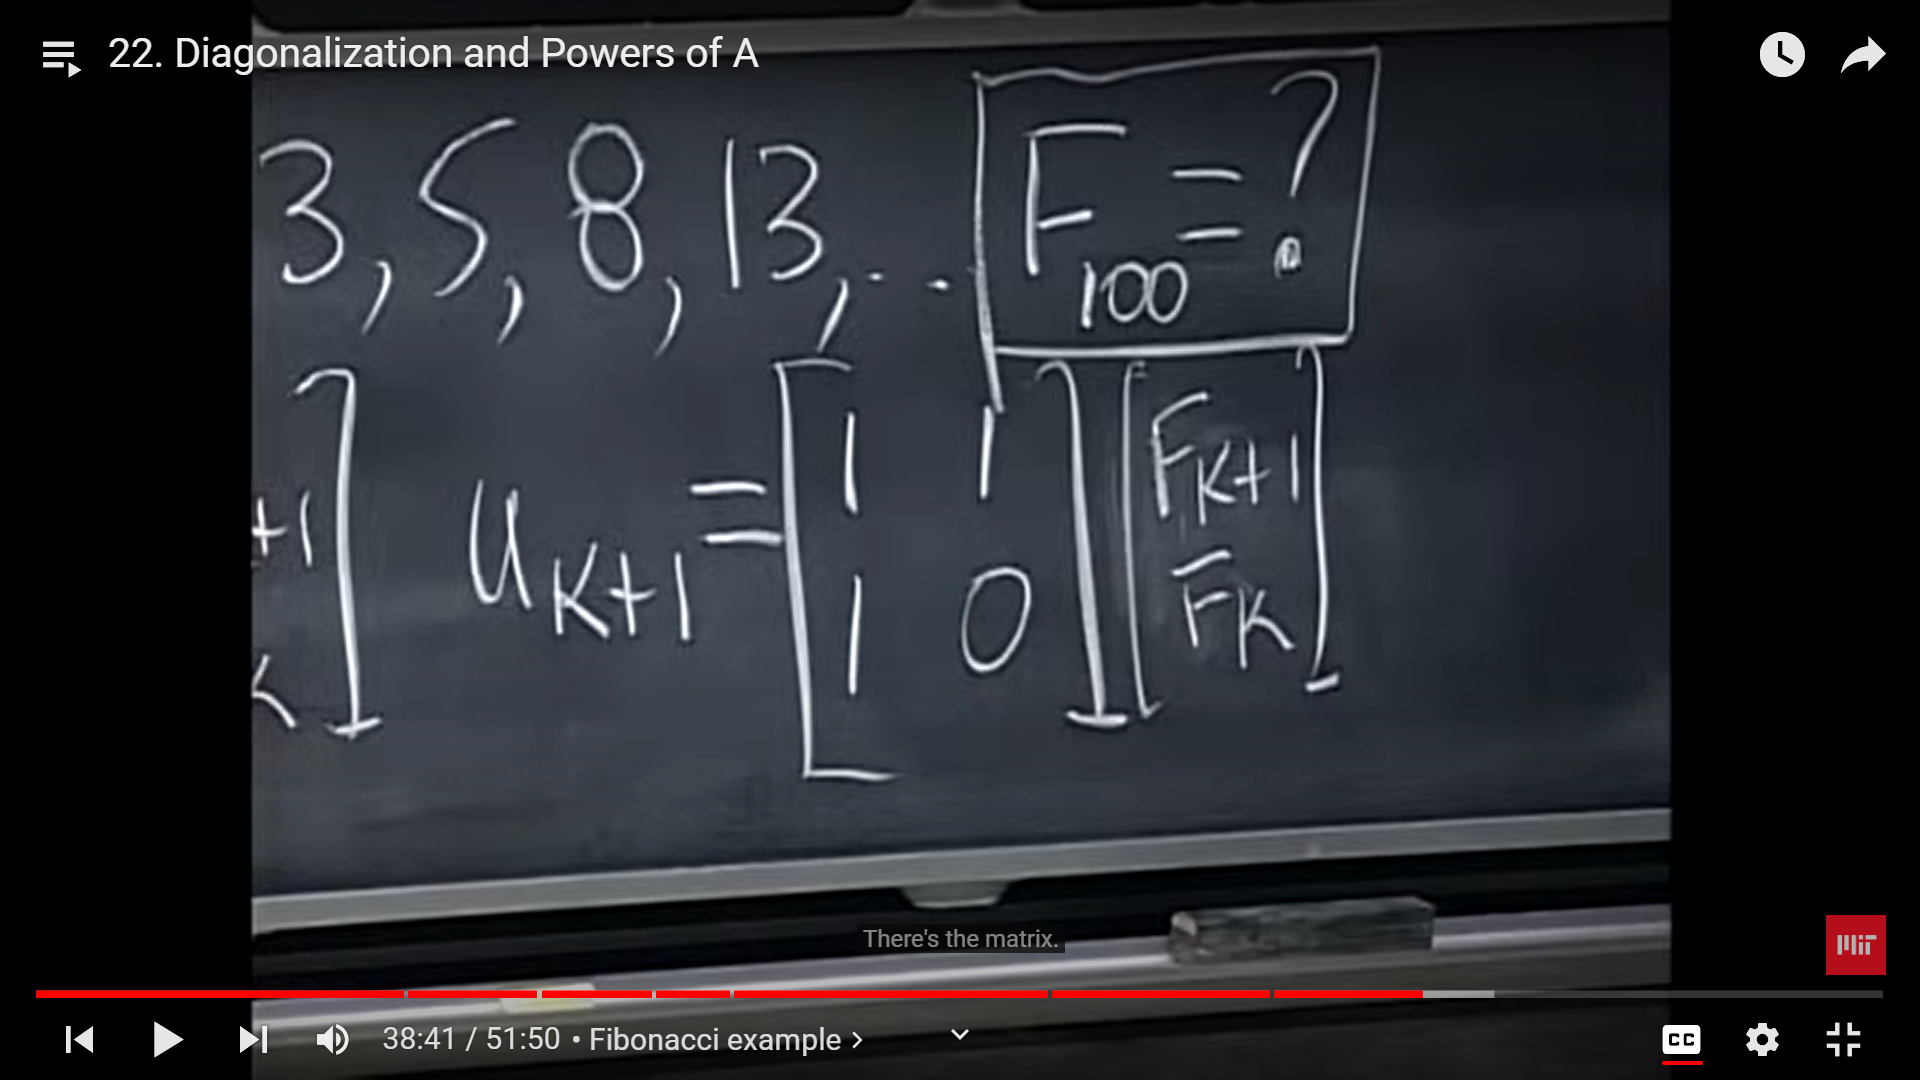 22. Diagonalization and Powers of A
3, 5, 8, 13, ... F100 = ?
+1
K
uK+1 = [1 1
1 0] [FK+1
FK]
There's the matrix.
MIT
38:41 / 51:50 • Fibonacci example >
CC